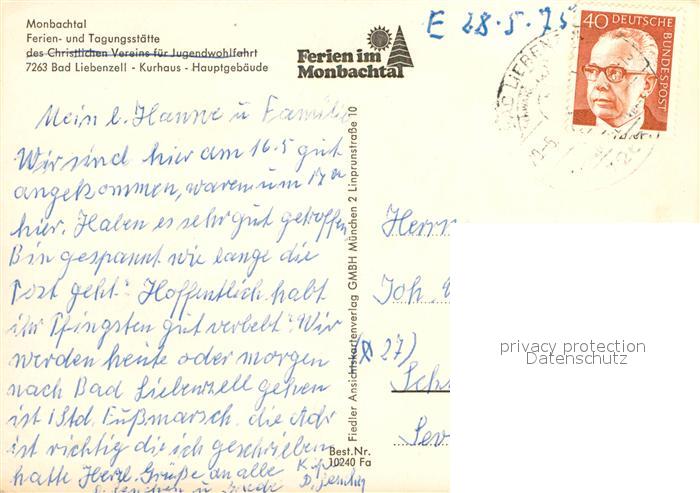 Monbachtal
Ferien- und Tagungsstätte
des Christlichen Vereins für Jugendwohlfahrt
7263 Bad Liebenzell - Kurhaus - Hauptgebäude
Ferien im
Monbachtal
E 28.5.75
40 DEUTSCHE
BUNDESPOST
Mein l. Hanne u Familie
Wir sind hier am 16.5 gut
angekommen, waren um 17
hier. Haben es sehr gut getroffen
Bin gespannt wie lange die
Post geht? Hoffentlich habt
ihr Pfingsten gut verlebt? Wir
werden heute oder morgen
nach Bad Liebenzell gehen
ist 1 Std. Fußmarsch. die Adr
ist richtig die ich geschrieben
hatte Herzl. Grüße an alle
Fiedler Ansichtskartenverlag GMBH München 2 Linprunstraße 10
Best.Nr.
10240 Fa
Herrn
Joh.
27)
privacy protection
Datenschutz